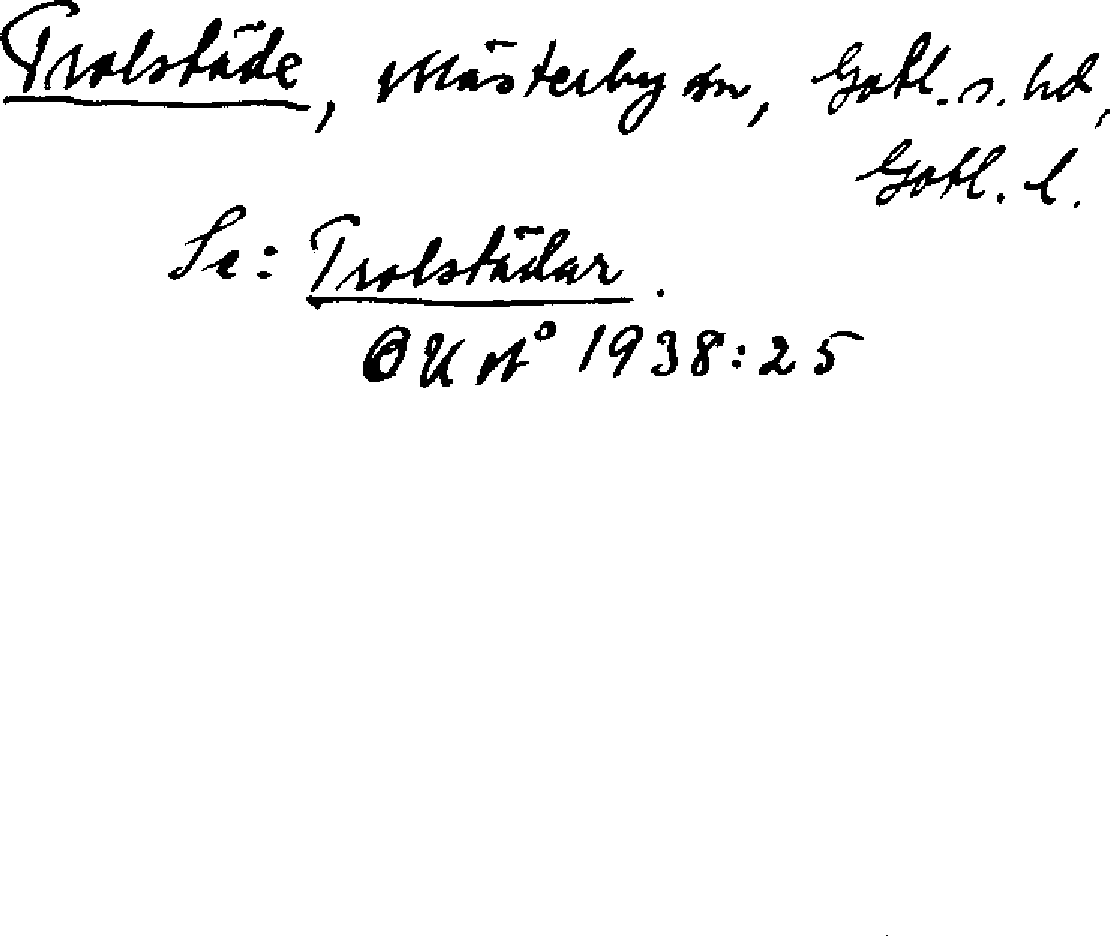 Tralstäde, Mästerby sn, Gotl. s. hd,
Gotl. l.
Se: Tralstädar.
OU nr 1938:25